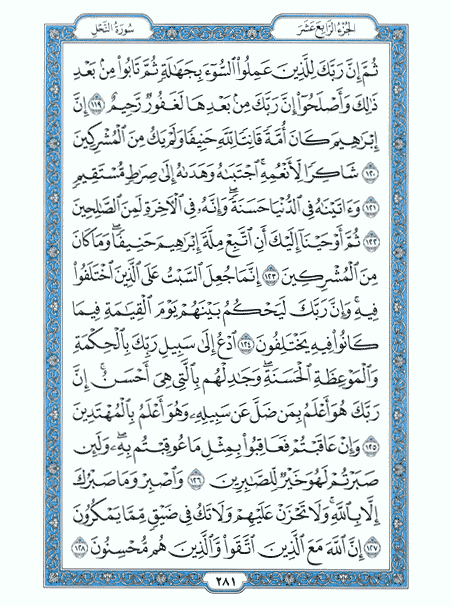 سُورَةُ النَّحْلِ
الجُزْءُ الرَّابِعَ عَشَرَ
ثُمَّ إِنَّ رَبَّكَ لِلَّذِينَ عَمِلُوا۟ ٱلسُّوٓءَ بِجَهَـٰلَةٍ ثُمَّ تَابُوا۟ مِنۢ بَعْدِ
ذَٰلِكَ وَأَصْلَحُوٓا۟ إِنَّ رَبَّكَ مِنۢ بَعْدِهَا لَغَفُورٌ رَّحِيمٌ ١١٩ إِنَّ
إِبْرَٰهِيمَ كَانَ أُمَّةً قَانِتًا لِّلَّهِ حَنِيفًا وَلَمْ يَكُ مِنَ ٱلْمُشْرِكِينَ
١٢٠ شَاكِرًا لِّأَنْعُمِهِ ۚ ٱجْتَبَىٰهُ وَهَدَىٰهُ إِلَىٰ صِرَٰطٍ مُّسْتَقِيمٍ
١٢١ وَءَاتَيْنَـٰهُ فِى ٱلدُّنْيَا حَسَنَةً ۖ وَإِنَّهُۥ فِى ٱلْـَٔاخِرَةِ لَمِنَ ٱلصَّـٰلِحِينَ
١٢٢ ثُمَّ أَوْحَيْنَآ إِلَيْكَ أَنِ ٱتَّبِعْ مِلَّةَ إِبْرَٰهِيمَ حَنِيفًا ۖ وَمَا كَانَ
مِنَ ٱلْمُشْرِكِينَ ١٢٣ إِنَّمَا جُعِلَ ٱلسَّبْتُ عَلَى ٱلَّذِينَ ٱخْتَلَفُوا۟
فِيهِ ۚ وَإِنَّ رَبَّكَ لَيَحْكُمُ بَيْنَهُمْ يَوْمَ ٱلْقِيَـٰمَةِ فِيمَا
كَانُوا۟ فِيهِ يَخْتَلِفُونَ ١٢٤ ٱدْعُ إِلَىٰ سَبِيلِ رَبِّكَ بِٱلْحِكْمَةِ
وَٱلْمَوْعِظَةِ ٱلْحَسَنَةِ ۖ وَجَـٰدِلْهُم بِٱلَّتِى هِىَ أَحْسَنُ ۚ إِنَّ
رَبَّكَ هُوَ أَعْلَمُ بِمَن ضَلَّ عَن سَبِيلِهِۦ وَهُوَ أَعْلَمُ بِٱلْمُهْتَدِينَ
١٢٥ وَإِنْ عَاقَبْتُمْ فَعَاقِبُوا۟ بِمِثْلِ مَا عُوقِبْتُم بِهِۦ ۖ وَلَئِن
صَبَرْتُمْ لَهُوَ خَيْرٌ لِّلصَّـٰبِرِينَ ١٢٦ وَٱصْبِرْ وَمَا صَبْرُكَ
إِلَّا بِٱللَّهِ ۚ وَلَا تَحْزَنْ عَلَيْهِمْ وَلَا تَكُ فِى ضَيْقٍ مِّمَّا يَمْكُرُونَ
١٢٧ إِنَّ ٱللَّهَ مَعَ ٱلَّذِينَ ٱتَّقَوا۟ وَّٱلَّذِينَ هُم مُّحْسِنُونَ ١٢٨
٢٨١